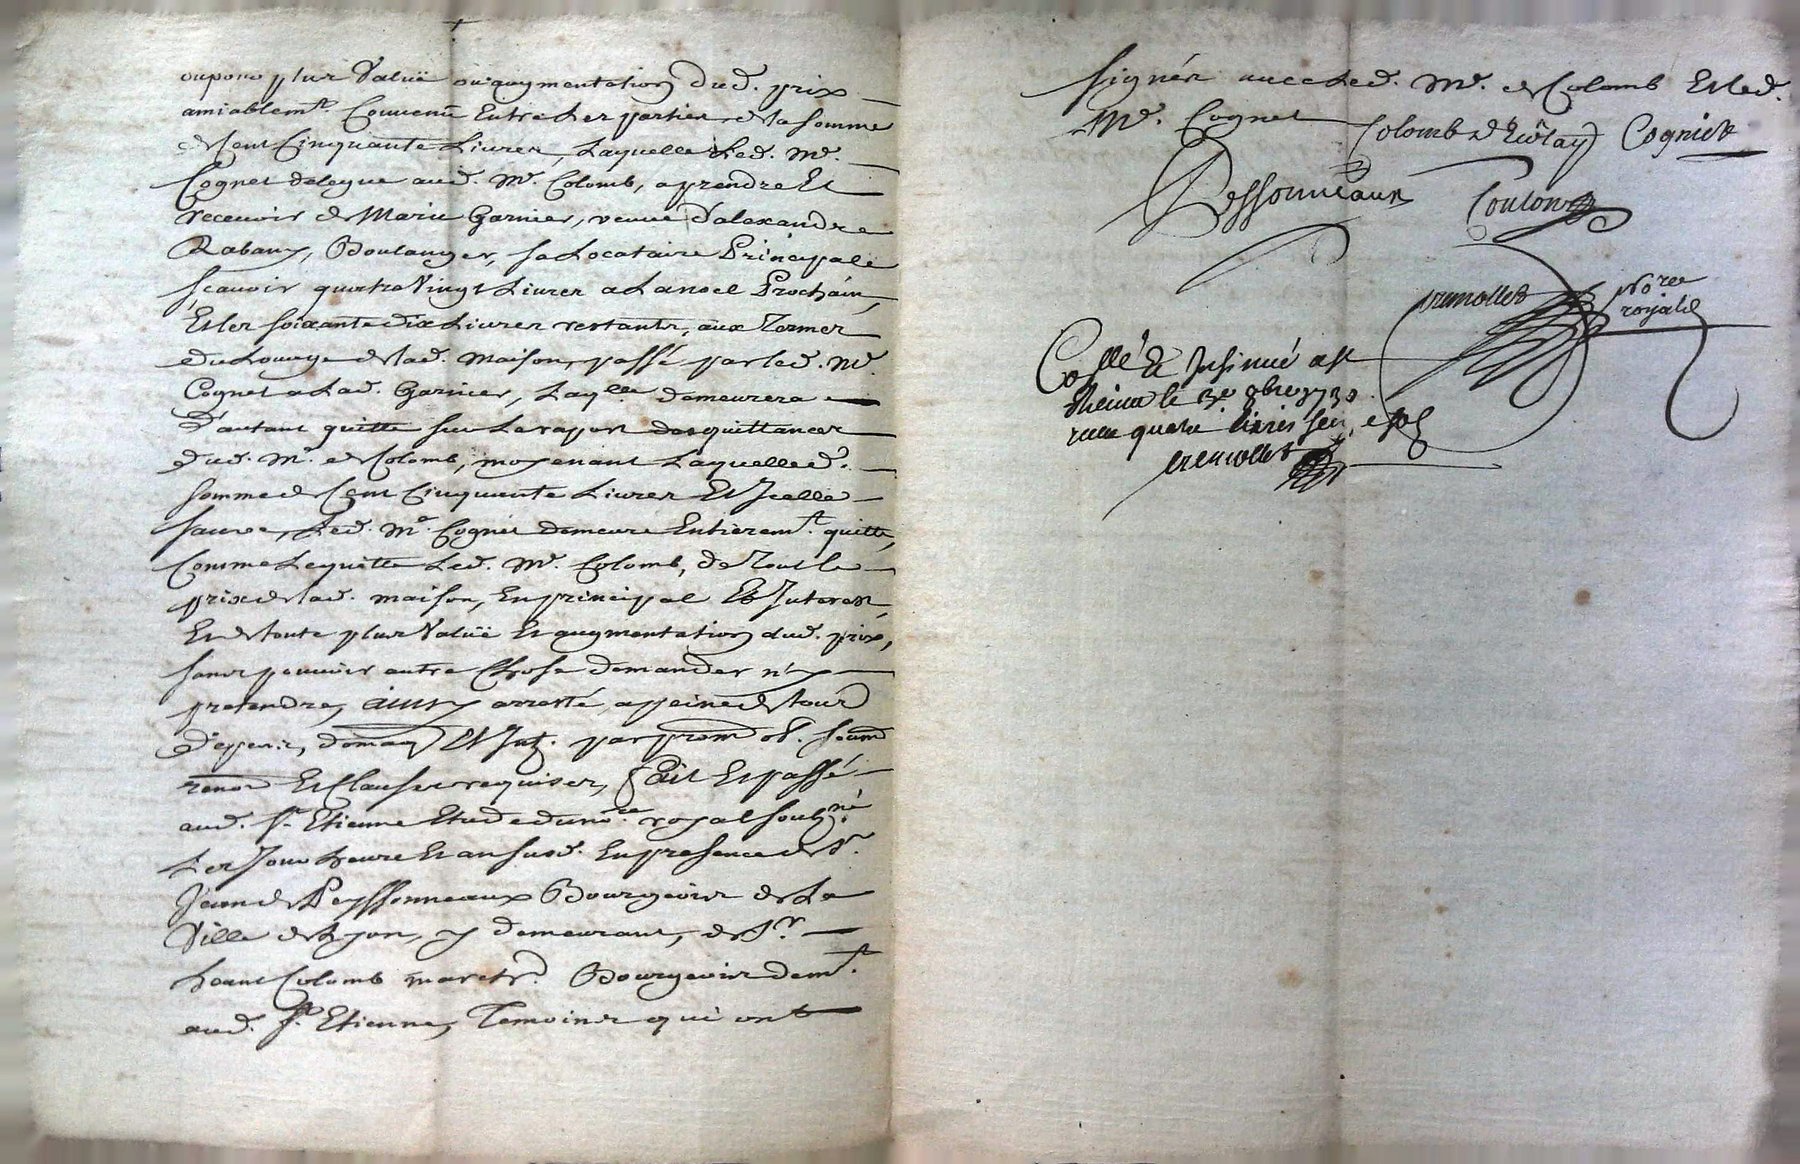 ou pour plus Valüe ou augmentation dud. prix
amiablemt. Convenu Entre Les parties de la somme
de Cent Cinquante Livres, Laquelle Led. Me.
Cognet delegue aud. Me. Colomb, a prendre Et
recevoir de Marie Garnier, veuve d'alexandre
Rabany, Boulanger, sa Locataire Principale
scavoir quatre Vingt Livres a La noel Prochain,
Et les soixante dix Livres restants, aux Termes
du Louage de lad. maison, passé par led. Me.
Cognet a Lad. Garnier, Laqlle. demeurera
D'autant quitte sur Le raport des quittances
dud. Me. de Colomb, moyenant Laquelle d.
somme de Cent Cinquante Livres Et Icelle
sauve, Led. Me. Cognet demeure Entieremt. quitte,
Comme Le quitte Led. Me. Colomb, de Tout le
prix de lad. maison, En principal Et Interest,
Et de toute plus Valüe Et augmentation dud. prix,
sans pouvoir autre Chose demander n'y
pretendre, ainsy arresté, a peine de tous
Depens, domag Et Int. par prom ob. soum
renon Et Clauses requises, Fait Et passé
aud. St. Etienne Etude du nore. royal soubné.
Les Jour heure Et an susd. En presence de Sr.
Jean de Peyssonneaux Bourgeois de La
Ville de Lyon, y demeurant, de Sr.
Colomb march. Bourgeois demt.
aud. St. Etienne, Temoins qui ont
signés avec Led. Me. de Colomb Et led.
Me. Cognet
Colomb Cognet
Pessonneaux Coulon
tremollet nore
royal
Collé & Insinué a St
Etienne le 3e 8bre 1730
receu quatre livres seize sols
tremollet